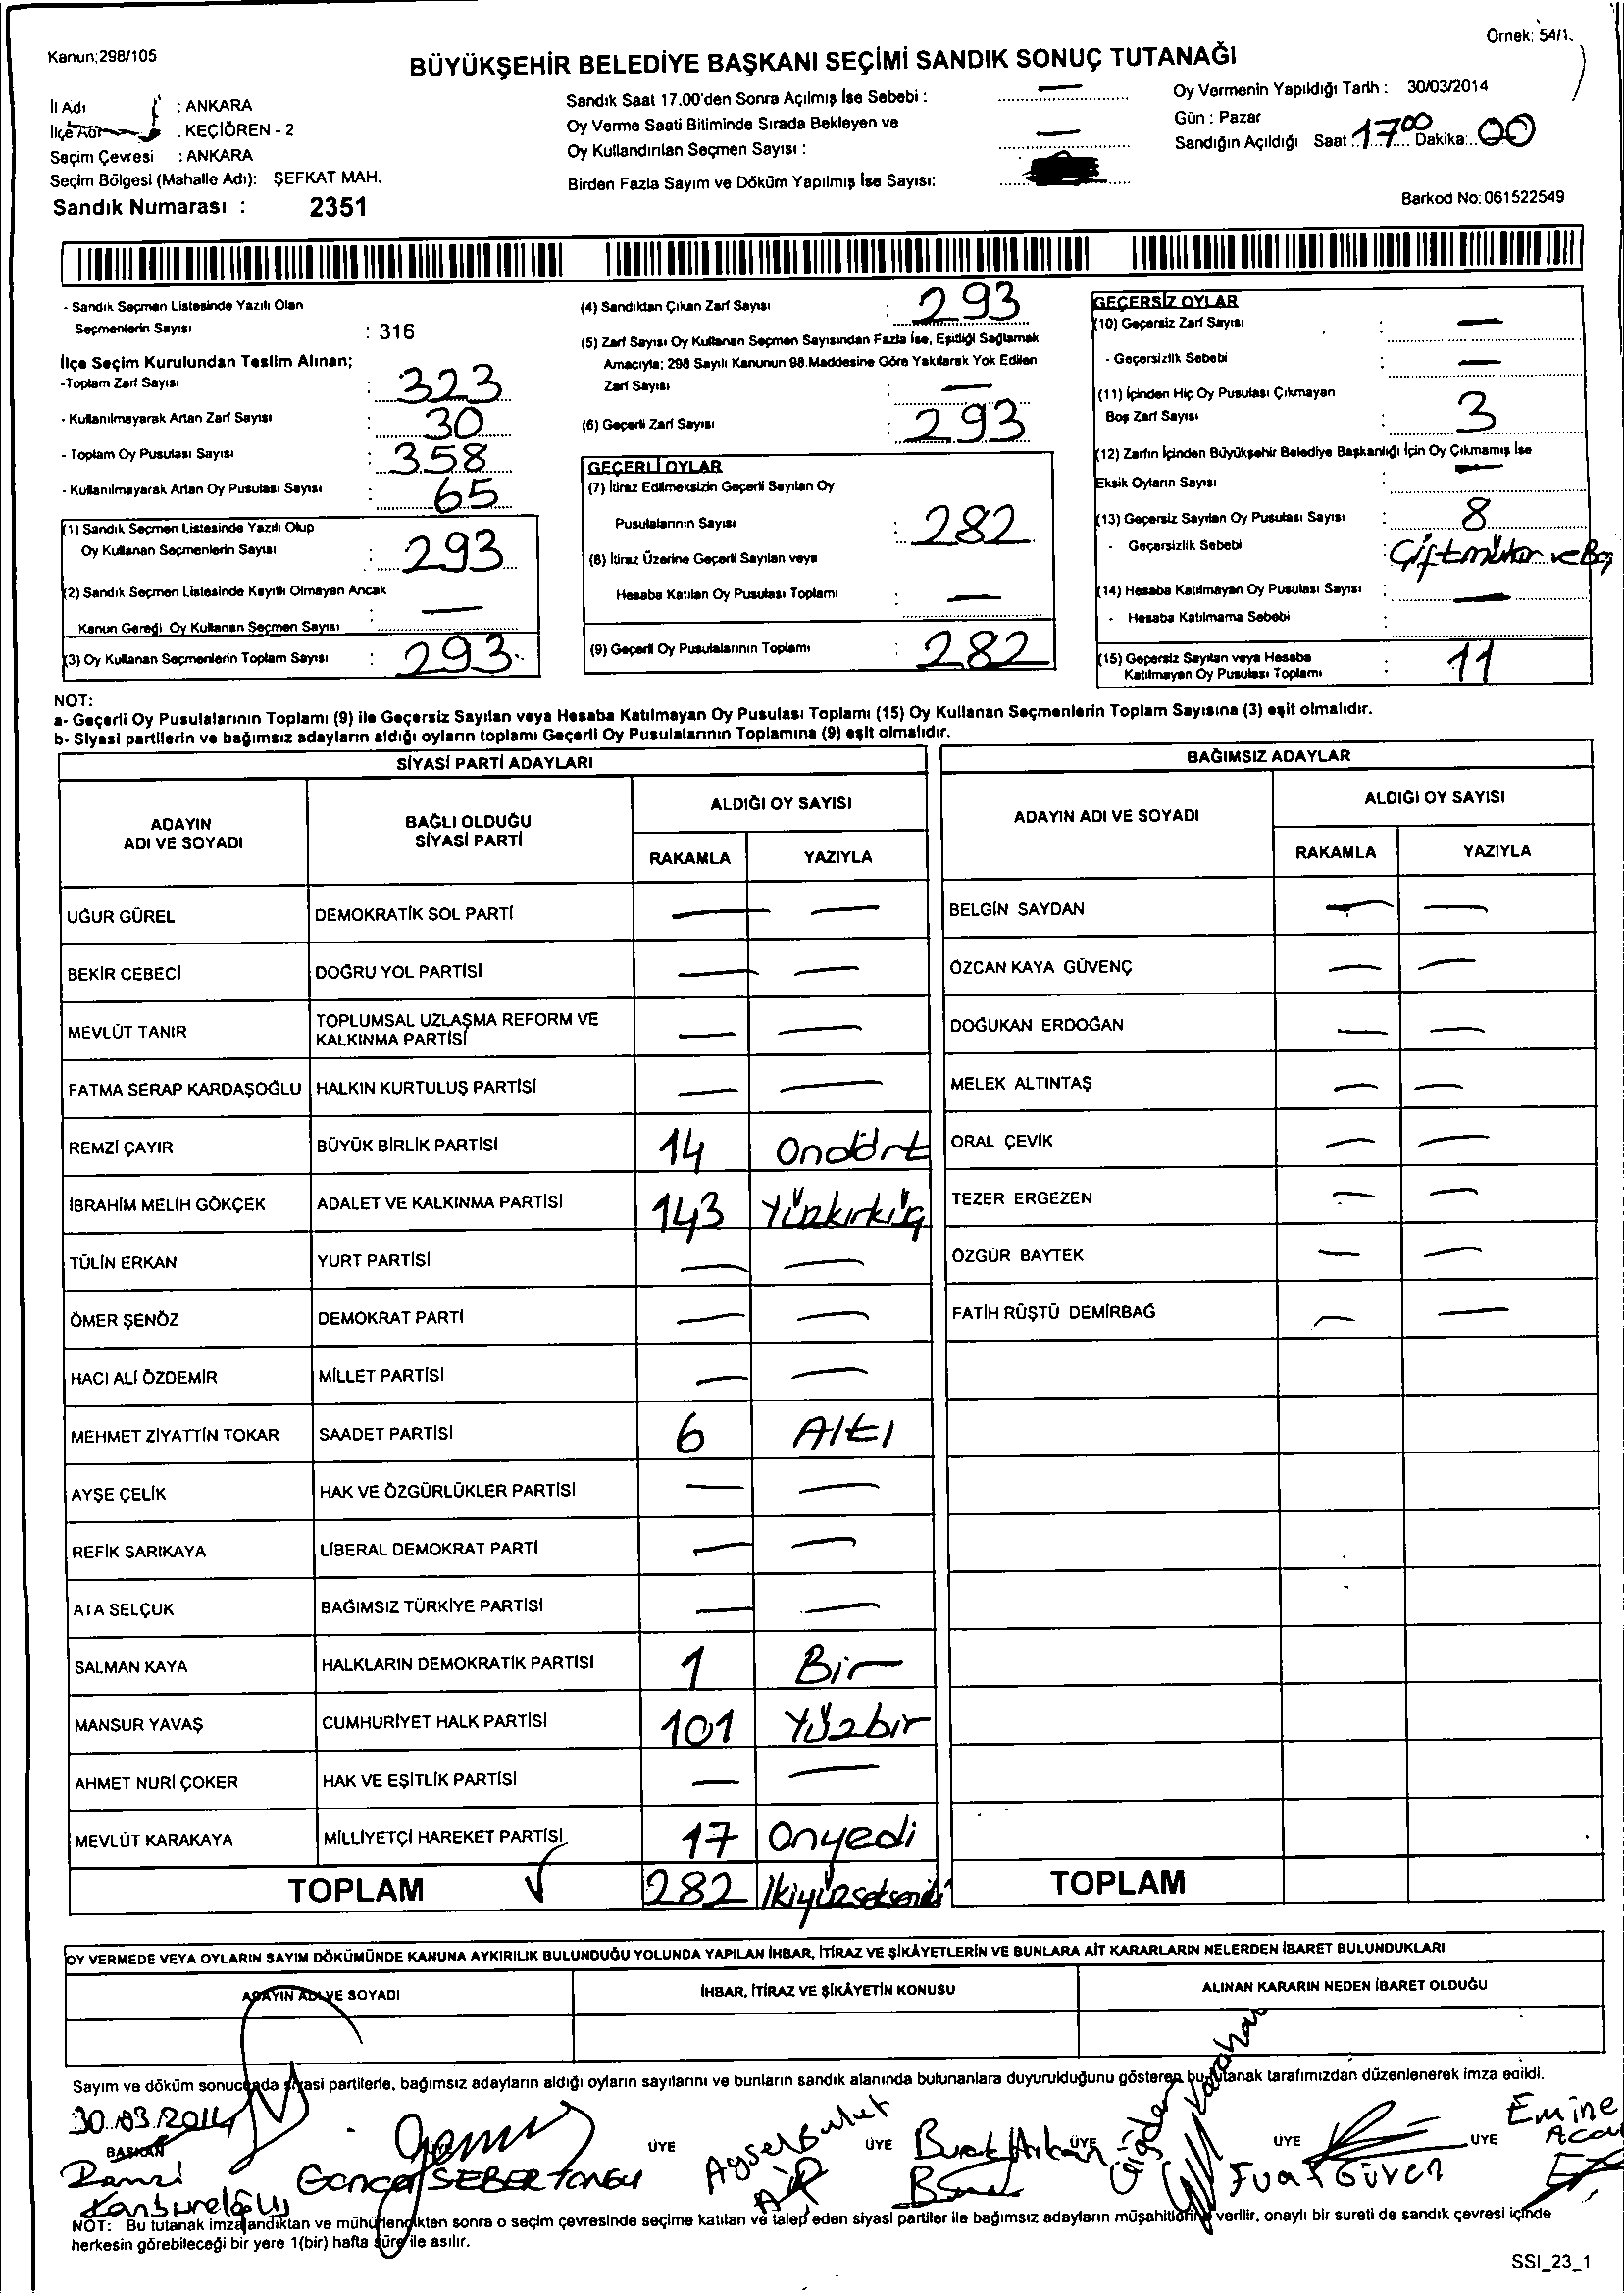 Kanun:298/105
Örnek: 54/1.
BÜYÜKŞEHİR BELEDİYE BAŞKANI SEÇİMİ SANDIK SONUÇ TUTANAĞI
İl Adı : ANKARA
İlçe Adı : KEÇİÖREN - 2
Seçim Çevresi : ANKARA
Seçim Bölgesi (Mahalle Adı): ŞEFKAT MAH.
Sandık Numarası : 2351
Sandık Saat 17.00'den Sonra Açılmış İse Sebebi : —
Oy Verme Saati Bitiminde Sırada Bekleyen ve
Oy Kullandırılan Seçmen Sayısı : —
Birden Fazla Sayım ve Döküm Yapılmış İse Sayısı:
Oy Vermenin Yapıldığı Tarih : 30/03/2014
Gün : Pazar
Sandığın Açıldığı Saat : 17 00 Dakika: 00
Barkod No: 061522549
- Sandık Seçmen Listesinde Yazılı Olan
Seçmenlerin Sayısı : 316
İlçe Seçim Kurulundan Teslim Alınan;
-Toplam Zarf Sayısı : 323
- Kullanılmayarak Artan Zarf Sayısı : 30
- Toplam Oy Pusulası Sayısı : 358
- Kullanılmayarak Artan Oy Pusulası Sayısı : 65
(1) Sandık Seçmen Listesinde Yazılı Olup
Oy Kullanan Seçmenlerin Sayısı : 293
(2) Sandık Seçmen Listesinde Kayıtlı Olmayan Ancak
Kanun Gereği Oy Kullanan Seçmen Sayısı : —
(3) Oy Kullanan Seçmenlerin Toplam Sayısı : 293
(4) Sandıktan Çıkan Zarf Sayısı : 293
(5) Zarf Sayısı Oy Kullanan Seçmen Sayısından Fazla İse, Eşitliği Sağlamak
Amacıyla; 298 Sayılı Kanunun 98.Maddesine Göre Yakılarak Yok Edilen
Zarf Sayısı : —
(6) Geçerli Zarf Sayısı : 293
GEÇERLİ OYLAR
(7) İtiraz Edilmeksizin Geçerli Sayılan Oy
Pusulalarının Sayısı : 282
(8) İtiraz Üzerine Geçerli Sayılan veya
Hesaba Katılan Oy Pusulası Toplamı : —
(9) Geçerli Oy Pusulalarının Toplamı : 282
GEÇERSİZ OYLAR
(10) Geçersiz Zarf Sayısı : —
- Geçersizlik Sebebi : —
(11) İçinden Hiç Oy Pusulası Çıkmayan
Boş Zarf Sayısı : 3
(12) Zarfın İçinden Büyükşehir Belediye Başkanlığı İçin Oy Çıkmamış İse
Eksik Oyların Sayısı : —
(13) Geçersiz Sayılan Oy Pusulası Sayısı : 8
- Geçersizlik Sebebi : Çift mühür ve Boş
(14) Hesaba Katılmayan Oy Pusulası Sayısı : —
- Hesaba Katılmama Sebebi :
(15) Geçersiz Sayılan veya Hesaba
Katılmayan Oy Pusulası Toplamı : 11
NOT:
a- Geçerli Oy Pusulalarının Toplamı (9) ile Geçersiz Sayılan veya Hesaba Katılmayan Oy Pusulası Toplamı (15) Oy Kullanan Seçmenlerin Toplam Sayısına (3) eşit olmalıdır.
b- Siyasi partilerin ve bağımsız adayların aldığı oyların toplamı Geçerli Oy Pusulalarının Toplamına (9) eşit olmalıdır.
SİYASİ PARTİ ADAYLARI
ADAYIN ADI VE SOYADI BAĞLI OLDUĞU SİYASİ PARTİ ALDIĞI OY SAYISI
RAKAMLA YAZIYLA
UĞUR GÜREL DEMOKRATİK SOL PARTİ — —
BEKİR CEBECİ DOĞRU YOL PARTİSİ — —
MEVLÜT TANIR TOPLUMSAL UZLAŞMA REFORM VE KALKINMA PARTİSİ — —
FATMA SERAP KARDAŞOĞLU HALKIN KURTULUŞ PARTİSİ — —
REMZİ ÇAYIR BÜYÜK BİRLİK PARTİSİ 14 Ondört
İBRAHİM MELİH GÖKÇEK ADALET VE KALKINMA PARTİSİ 143 Yüzkırküç
TÜLİN ERKAN YURT PARTİSİ — —
ÖMER ŞENÖZ DEMOKRAT PARTİ — —
HACI ALİ ÖZDEMİR MİLLET PARTİSİ — —
MEHMET ZİYATTİN TOKAR SAADET PARTİSİ 6 Altı
AYŞE ÇELİK HAK VE ÖZGÜRLÜKLER PARTİSİ — —
REFİK SARIKAYA LİBERAL DEMOKRAT PARTİ — —
ATA SELÇUK BAĞIMSIZ TÜRKİYE PARTİSİ — —
SALMAN KAYA HALKLARIN DEMOKRATİK PARTİSİ 1 Bir
MANSUR YAVAŞ CUMHURİYET HALK PARTİSİ 101 Yüzbir
AHMET NURİ ÇOKER HAK VE EŞİTLİK PARTİSİ — —
MEVLÜT KARAKAYA MİLLİYETÇİ HAREKET PARTİSİ 17 Onyedi
TOPLAM 282 İkiyüzsekseniki
BAĞIMSIZ ADAYLAR
ADAYIN ADI VE SOYADI ALDIĞI OY SAYISI
RAKAMLA YAZIYLA
BELGİN SAYDAN — —
ÖZCAN KAYA GÜVENÇ — —
DOĞUKAN ERDOĞAN — —
MELEK ALTINTAŞ — —
ORAL ÇEVİK — —
TEZER ERGEZEN — —
ÖZGÜR BAYTEK — —
FATİH RÜŞTÜ DEMİRBAĞ — —
TOPLAM
OY VERMEDE VEYA OYLARIN SAYIM DÖKÜMÜNDE KANUNA AYKIRILIK BULUNDUĞU YOLUNDA YAPILAN İHBAR, İTİRAZ VE ŞİKÂYETLERİN VE BUNLARA AİT KARARLARIN NELERDEN İBARET BULUNDUKLARI
ADAYIN ADI VE SOYADI İHBAR, İTİRAZ VE ŞİKÂYETİN KONUSU ALINAN KARARIN NEDEN İBARET OLDUĞU
Sayım ve döküm sonucunda siyasi partilerle, bağımsız adayların aldığı oyların sayılarını ve bunların sandık alanında bulunanlara duyurulduğunu gösteren bu tutanak tarafımızdan düzenlenerek imza edildi.
30.03.2014
BAŞKAN ÜYE ÜYE ÜYE ÜYE ÜYE
Aysel Bulut
Burak Arıkan
Fuat Güven
Emine
NOT: Bu tutanak imzalandıktan ve mühürlendikten sonra o seçim çevresinde seçime katılan ve talep eden siyasi partiler ile bağımsız adayların müşahitlerine verilir, onaylı bir sureti de sandık çevresi içinde
herkesin görebileceği bir yere 1(bir) hafta süre ile asılır.
SSI_23_1